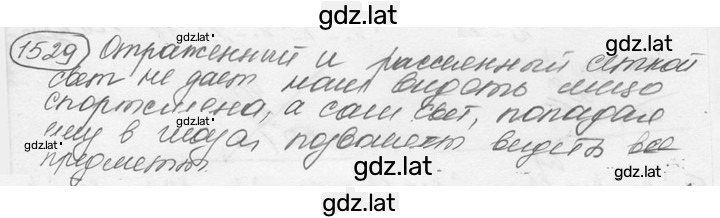 gdz.lat
1529 Отраженный и рассеянный сеткой
свет не дает нам видеть лицо
спортсмена, а сам свет, попадая
ему в глаза, позволяет видеть все
предметы.
gdz.lat
gdz.lat
gdz.lat
gdz.lat
gdz.lat
gdz.lat
gdz.lat